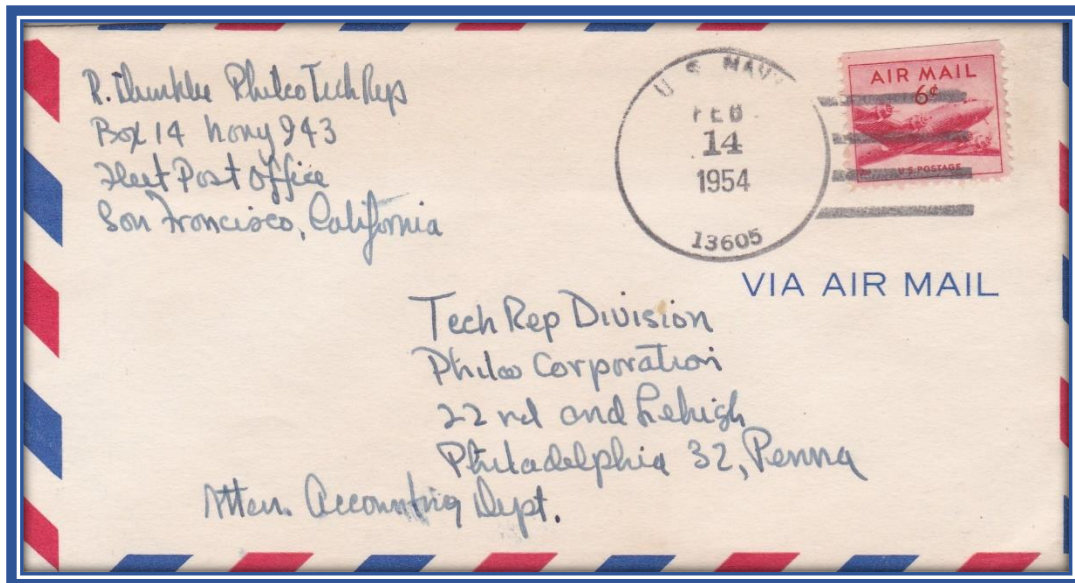 R. Dunklee Philco Tech Reps
Box 14 Navy 943
Fleet Post Office
San Francisco, California
U.S. NAVY
FEB
14
1954
13605
AIR MAIL
6¢
U.S. POSTAGE
VIA AIR MAIL
Tech Rep Division
Philco Corporation
22nd and Lehigh
Philadelphia 32, Penna
Atten. Accounting Dept.